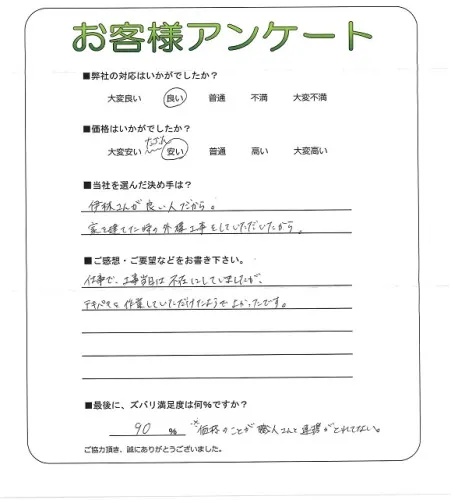 お客様アンケート
■弊社の対応はいかがでしたか？
大変良い 良い 普通 不満 大変不満
■価格はいかがでしたか？
たぶん
大変安い 安い 普通 高い 大変高い
■当社を選んだ決め手は？
伊林さんが良い人だから。
家を建てた時の外構工事をしていただいたから。
■ご感想・ご要望などをお書き下さい。
仕事で、工事当日は不在にしていましたが、
テキパキと作業していただけたようでよかったです。
■最後に、ズバリ満足度は何％ですか？
90 ％ ※価格のことが職人さんと連携がとれてない。
ご協力頂き、誠にありがとうございました。